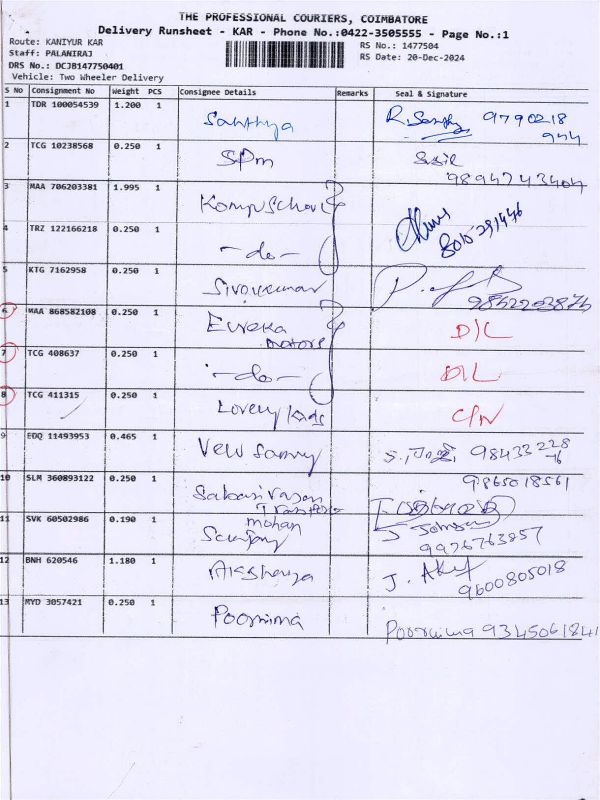 THE PROFESSIONAL COURIERS, COIMBATORE
Delivery Runsheet - KAR - Phone No.:0422-3505555 - Page No.:1
Route: KANIYUR KAR
RS No.: 1477504
Staff: PALANIRAJ
RS Date: 20-Dec-2024
DRS No.: DCJB147750401
Vehicle: Two Wheeler Delivery
S No Consignment No Weight PCS Consignee Details Remarks Seal & Signature
1 TDR 100054539 1.200 1 Santhya 9790218
944
2 TCG 10238568 0.250 1 SPM Sasi
9894743404
3 MAA 706203381 1.995 1
4 TRZ 122166218 0.250 1 -do- 8015291476
5 KTG 7162958 0.250 1 Sivakumar 9842203876
6 MAA 868582108 0.250 1 Eureka
motors D/L
7 TCG 408637 0.250 1 -do- D/L
8 TCG 411315 0.250 1 Lovely kids C/N
9 EDQ 11493953 0.465 1 98433228
76
10 SLM 360893122 0.250 1 9865018561
11 SVK 60502986 0.190 1 mohan
Sanjay 9976763857
12 BNH 620546 1.180 1 J. 9600805018
13 MYD 3057421 0.250 1 Poornima Poornima 9345061841